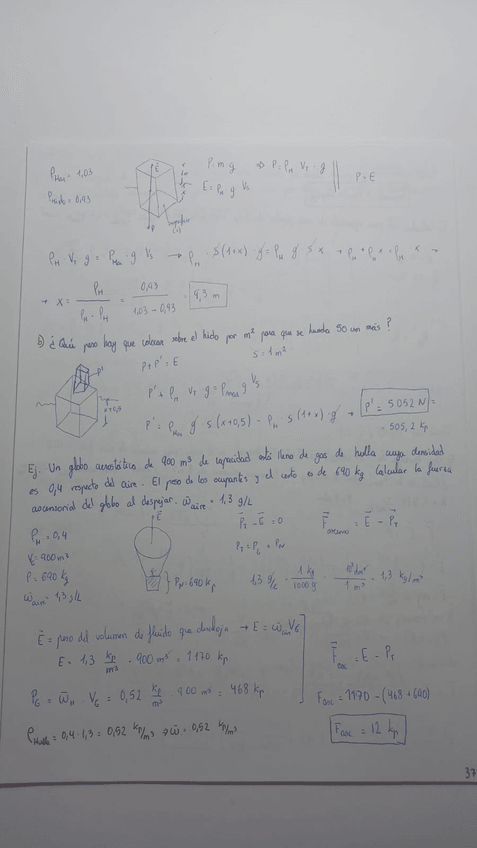 ρMar = 1,03
ρHielo = 0,93
P = m g ⇒ P = ρH VT · g
E = ρM g VS
P = E
ρH VT g = ρMar · g VS → ρH · S(1+x) g = ρM g S x → ρH + ρH x = ρM x →
→ x = ρH / (ρM - ρH) = 0,93 / (1,03 - 0,93) = 9,3 m
b) ¿Qué peso hay que colocar sobre el hielo por m² para que se hunda 50 cm más?
S = 1 m²
P + P' = E
P' + ρH VT · g = ρMar g VS
P' = ρMar g S (x+0,5) - ρH · S (1+x) g → P' = 5052 N =
= 505,2 kp
Ej. Un globo aerostático de 900 m³ de capacidad está lleno de gas de hulla cuya densidad
es 0,4 respecto del aire. El peso de los ocupantes y el cesto es de 690 kg Calcular la fuerza
ascensorial del globo al despejar. ω̄aire = 1,3 g/L
ρH = 0,4
VG = 900 m³
P = 690 kg
ω̄aire = 1,3 g/L
E
PN = 690 kp
PT - E = 0
PT = PG + PN
F ascenso = E - PT
1,3 g/L · 1 kg / 1000 g · 10³ dm³ / 1 m³ = 1,3 kg/m³
E = peso del volumen de fluido que desaloja → E = ω̄aire VG
E = 1,3 kp/m³ · 900 m³ = 1170 kp
PG = ω̄H · VG = 0,52 kp/m³ · 900 m³ = 468 kp
ρHulla = 0,4 · 1,3 = 0,52 kp/m³ → ω̄ = 0,52 kp/m³
Fasc = E - PT
Fasc = 1170 - (468 + 690)
Fasc = 12 kp
37